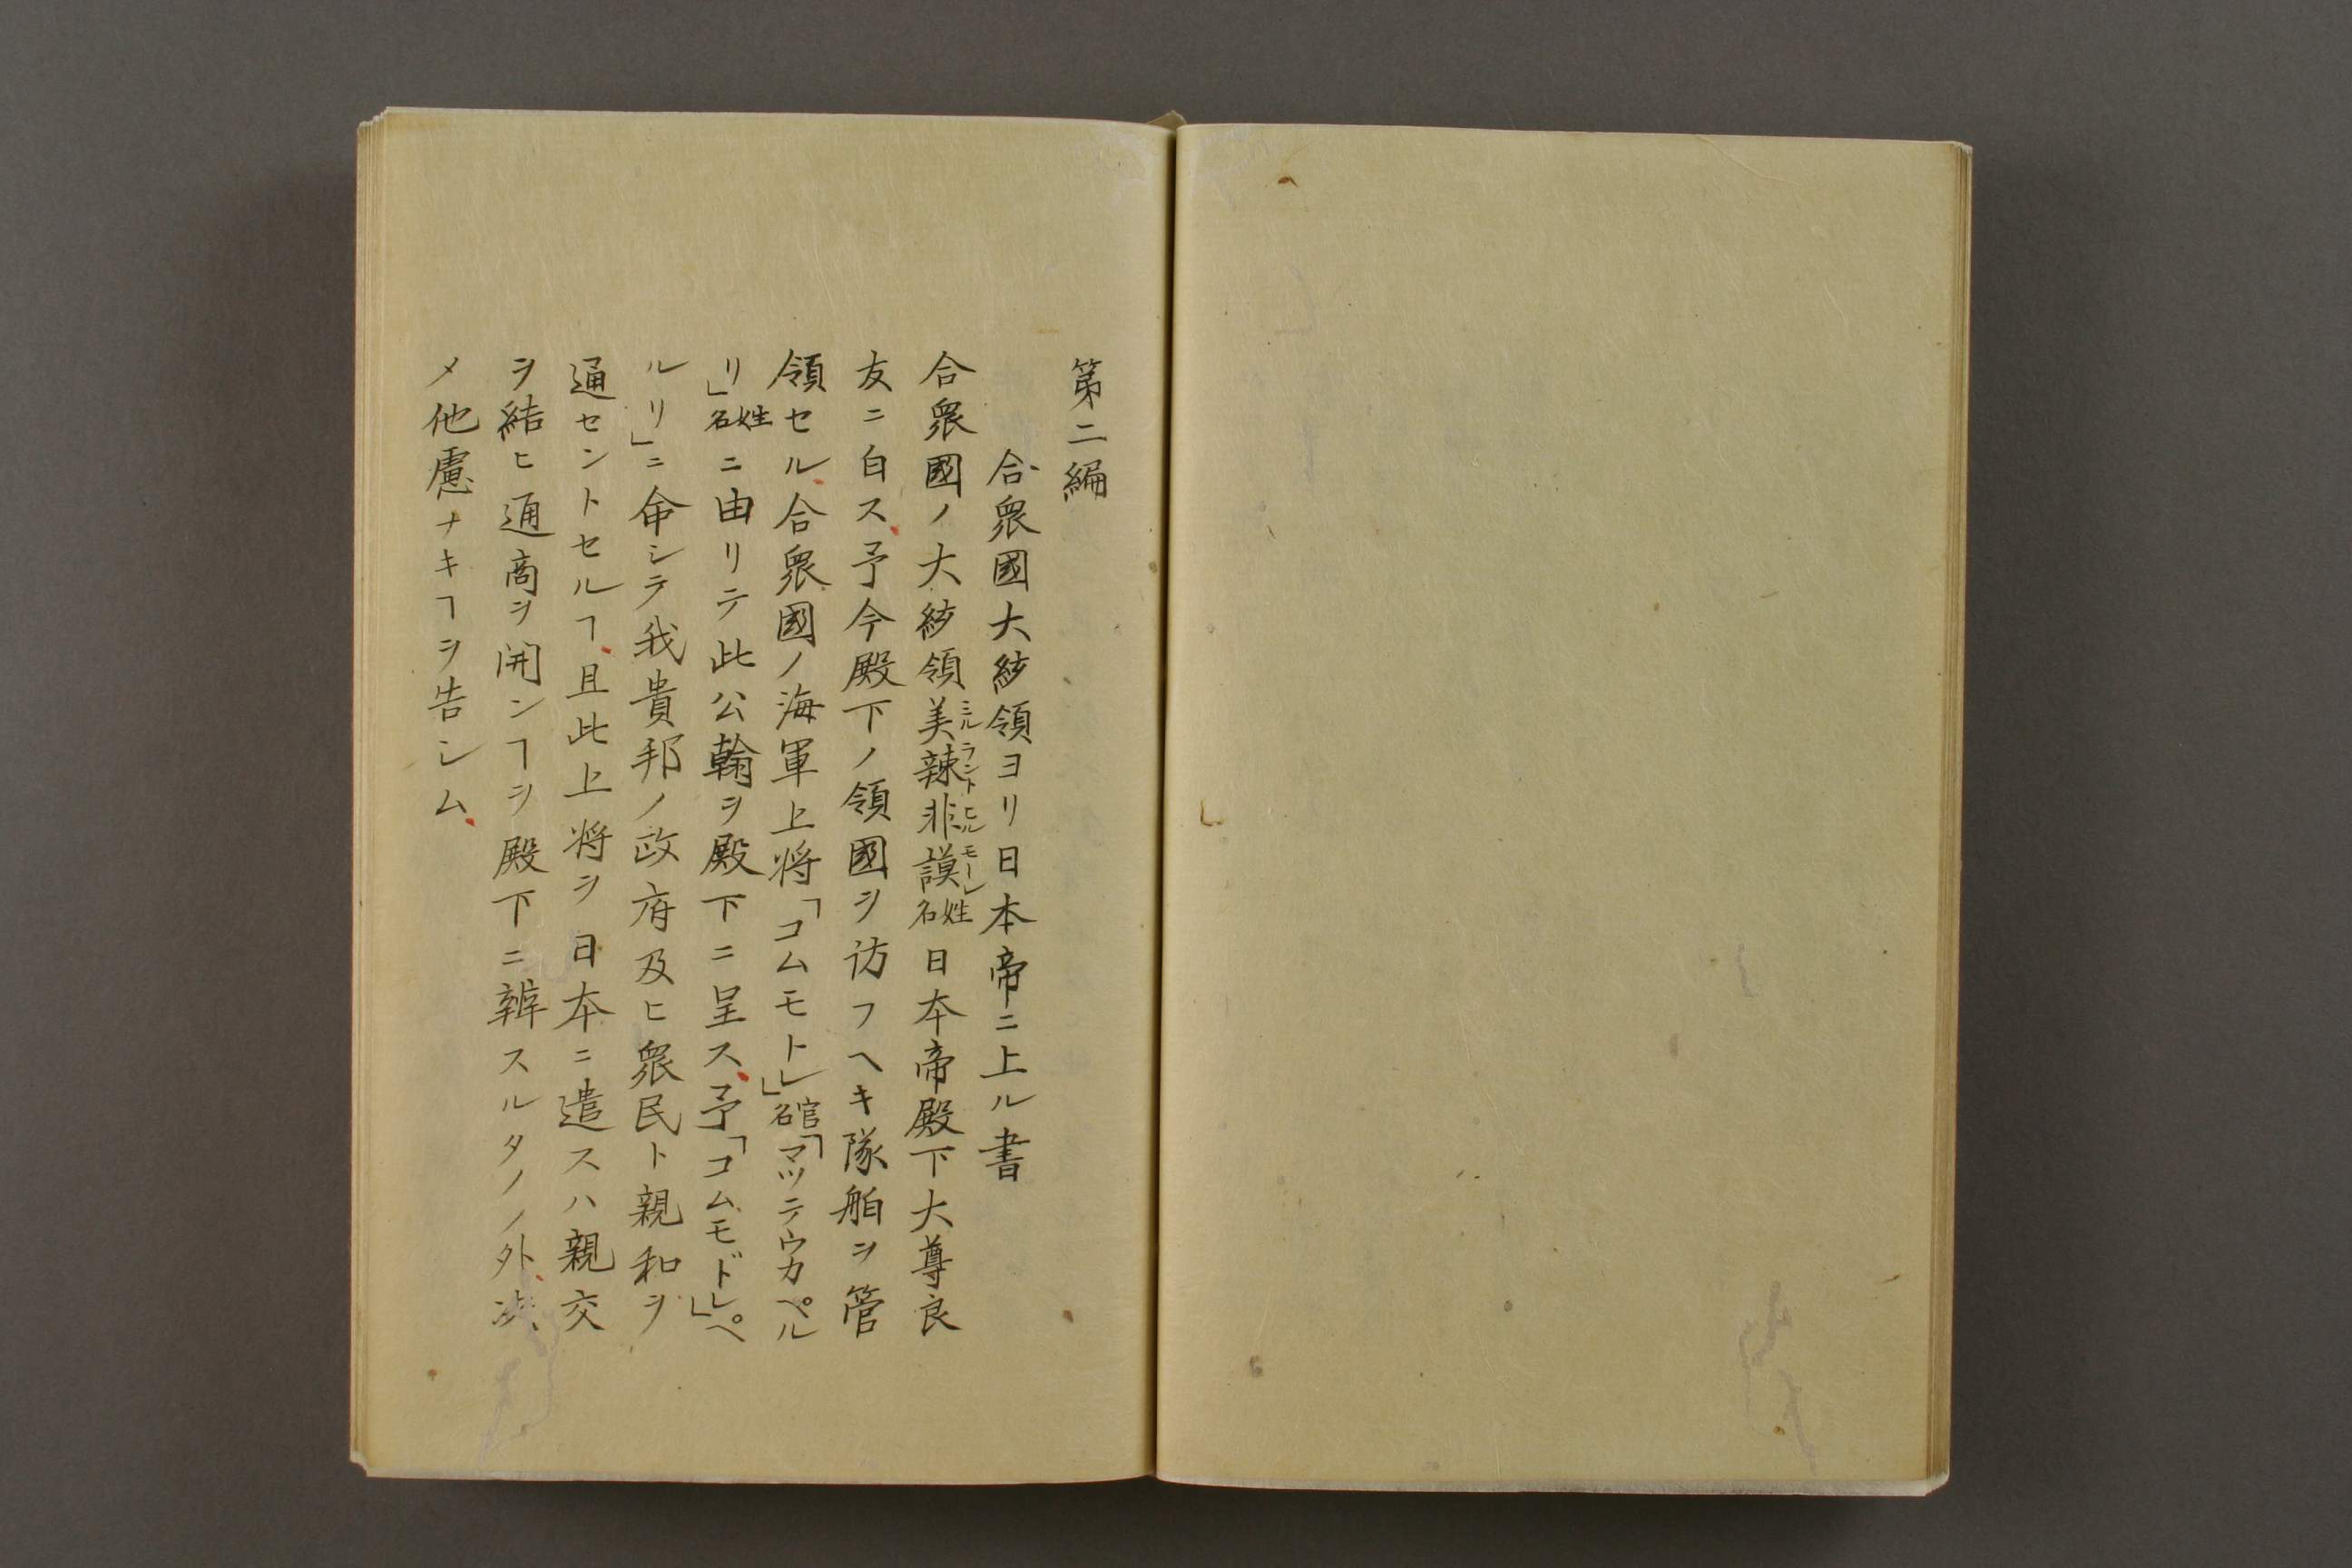 第二編
合衆國大統領ヨリ日本帝ニ上ル書
合衆國ノ大統領美辣非謨ミルラントヒルモーレ姓名日本帝殿下大尊良
友ニ白ス、予今殿下ノ領國ヲ訪フヘキ隊舶ヲ管
領セル、合衆國ノ海軍上将「コムモトレ」官名「マツテウカペル
リ」姓名ニ由リテ此公翰ヲ殿下ニ呈ス、予「コムモドレ」「ペ
ルリ」ニ命シテ我貴邦ノ政府及ヒ衆民ト親和ヲ
通セントセルヿ、且此上将ヲ日本ニ遣スハ親交
ヲ結ヒ通商ヲ開ンヿヲ殿下ニ辨スルタノノ外、决
メ他慮ナキヿヲ告シム、